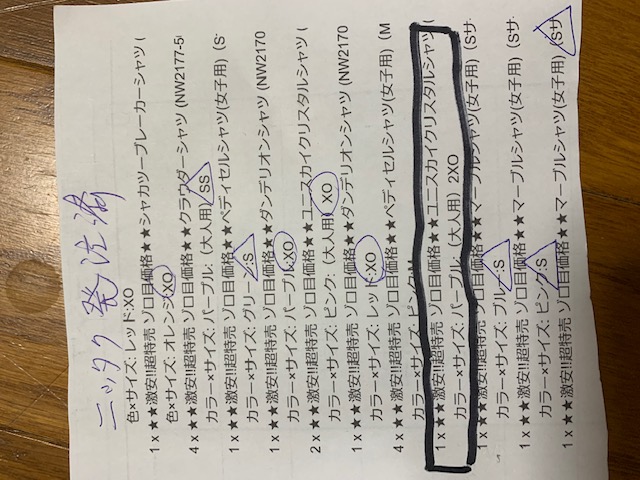 ニッタク発注済
色×サイズ: レッド:XO
1 x ★★激安!!超特売 ゾロ目価格★★シャカツーブレーカーシャツ (
色×サイズ: オレンジ:XO
4 x ★★激安!!超特売 ゾロ目価格★★クラウダーシャツ (NW2177-5
カラー×サイズ: パープル: (大人用) SS
1 x ★★激安!!超特売 ゾロ目価格★★ペディセルシャツ(女子用) (S
カラー×サイズ: グリーン:S
1 x ★★激安!!超特売 ゾロ目価格★★ダンデリオンシャツ (NW2170
カラー×サイズ: パープル:XO
2 x ★★激安!!超特売 ゾロ目価格★★ユニスカイクリスタルシャツ (
カラー×サイズ: ピンク: (大人用) XO
1 x ★★激安!!超特売 ゾロ目価格★★ダンデリオンシャツ (NW2170
カラー×サイズ: レッド:XO
4 x ★★激安!!超特売 ゾロ目価格★★ペディセルシャツ(女子用) (M
カラー×サイズ: ピンク:M
1 x ★★激安!!超特売 ゾロ目価格★★ユニスカイクリスタルシャツ (
カラー×サイズ: パープル: (大人用) 2XO
1 x ★★激安!!超特売 ゾロ目価格★★マーブルシャツ(女子用) (Sサ
カラー×サイズ: ブルー:S
1 x ★★激安!!超特売 ゾロ目価格★★マーブルシャツ(女子用) (Sサ
カラー×サイズ: ピンク:S
1 x ★★激安!!超特売 ゾロ目価格★★マーブルシャツ(女子用) (Sサ